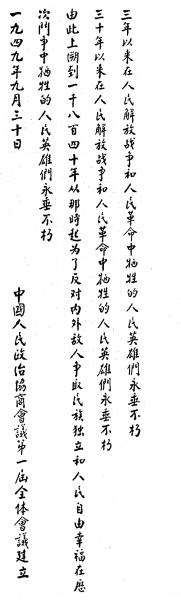 三年以来在人民解放战争和人民革命中牺牲的人民英雄們永垂不朽
三十年以来在人民解放战争和人民革命中牺牲的人民英雄們永垂不朽
由此上溯到一千八百四十年从那時起为了反对内外敌人争取民族独立和人民自由幸福在歷
次鬥争中牺牲的人民英雄們永垂不朽
一九四九年九月三十日　中國人民政治協商會議第一届全体會議建立